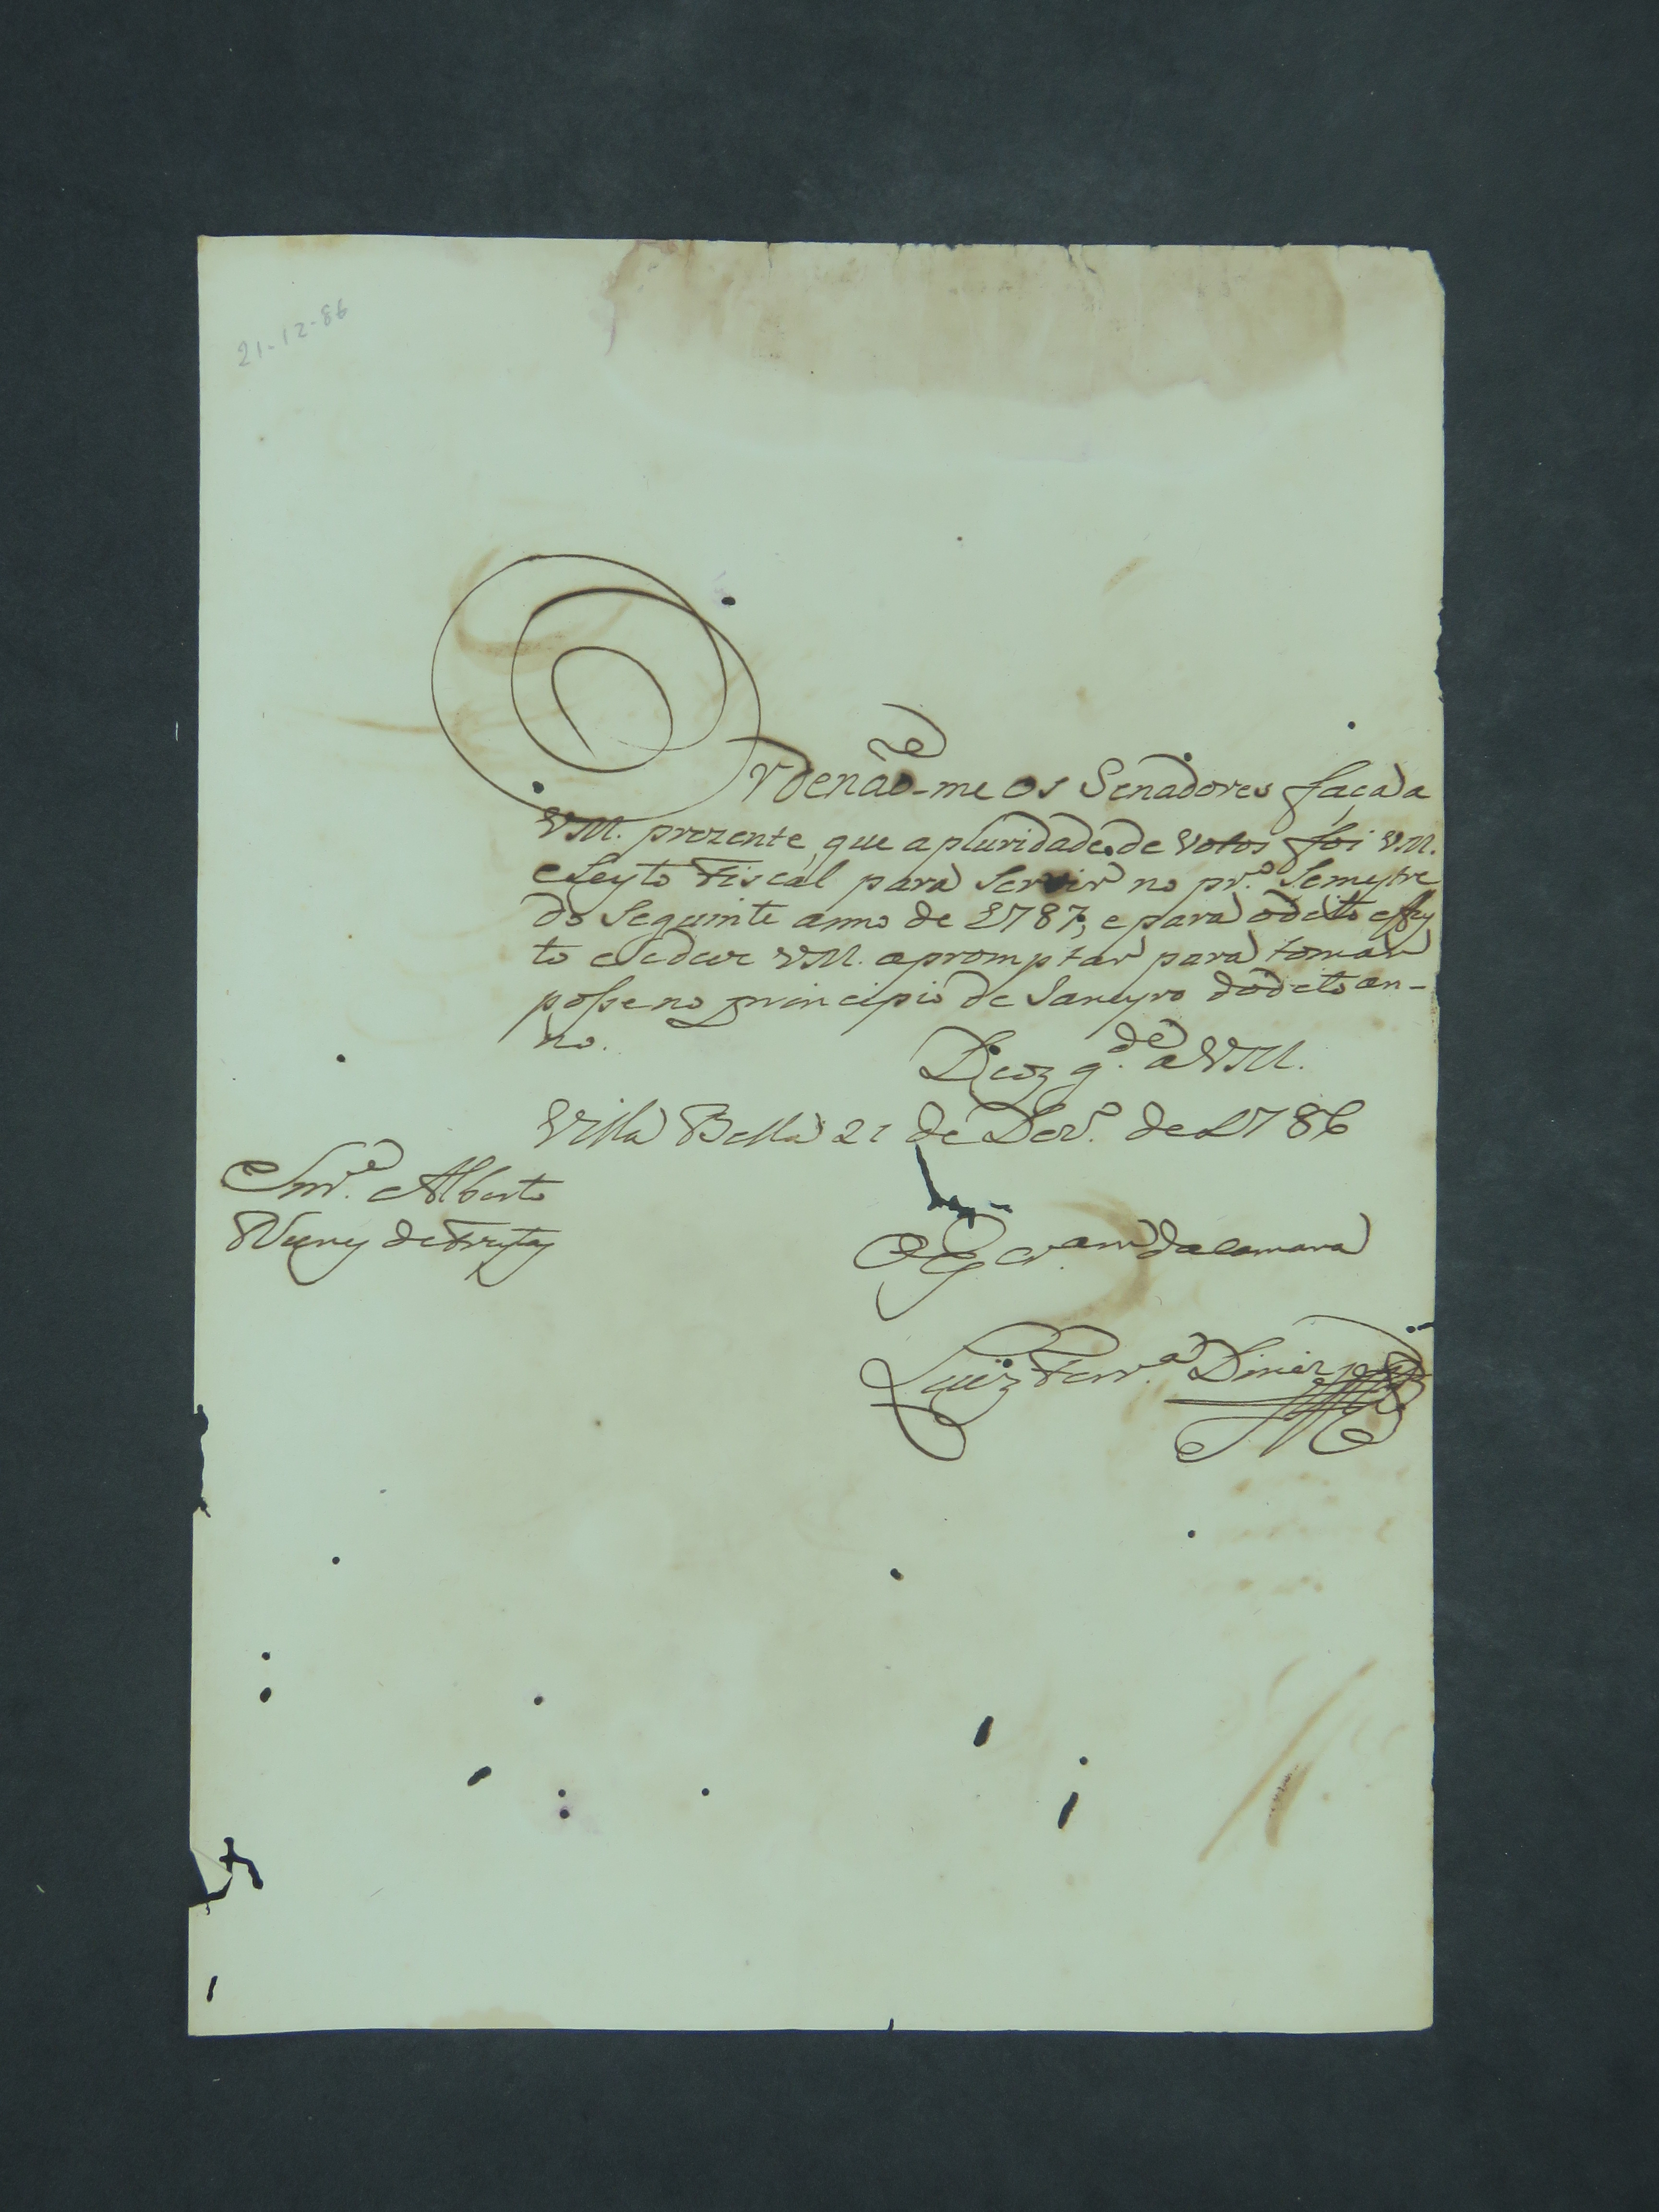 21-12-86
Ordenão-me os Senadores faça a
VM. prezente, que a pluridade de votos foi VM.
eleyto Fiscal para servir no pr.o Semestre
do Seguinte anno de 1787, e para o dito effey
to se deve VM. apromptar para tomar
posse no principio de Janeyro do dito an-
no.
Deoz g.de a VM.
Villa Bella 21 de Dez.o de 1786
Snr.e Alberto
Nunes de Freytas
O Escr.am da Camara
Luiz Ferr.a Diniz